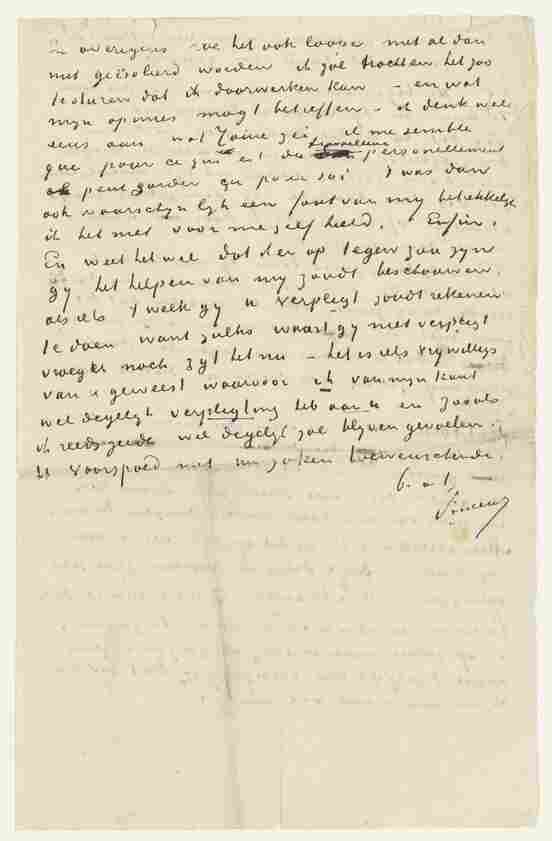 En overigens hoe het ook loope met al dan
niet geïsoleerd worden ik zal trachten het zoo
te sturen dat ik doorwerken kan – en wat
mijn opinies mogt betreffen – ik denk wel
eens aan wat zei il me semble
que pour ce qui est du personellement
on peut garder ça pour soi 't was dan
ook waarschijnlijk een fout van my
ik het niet voor me zelf hield. Enfin.
En weet het wel dat ik er op tegen zou zyn
gy het helpen van my zoudt beschouwen
als iets 't welk gy u verpligt zoudt rekenen
te doen want zulks waart gy niet verpligt
vroeger noch zyt het nu – het is iets vrywilligs
van u geweest waarvoor ik van mijn kant
wel degelyk verpligting heb aan u en zooals
ik reeds zeide wel degelyk zal blyven gevoelen.
U voorspoed met uw zaken toewenschende.
b. à t.
Vincent